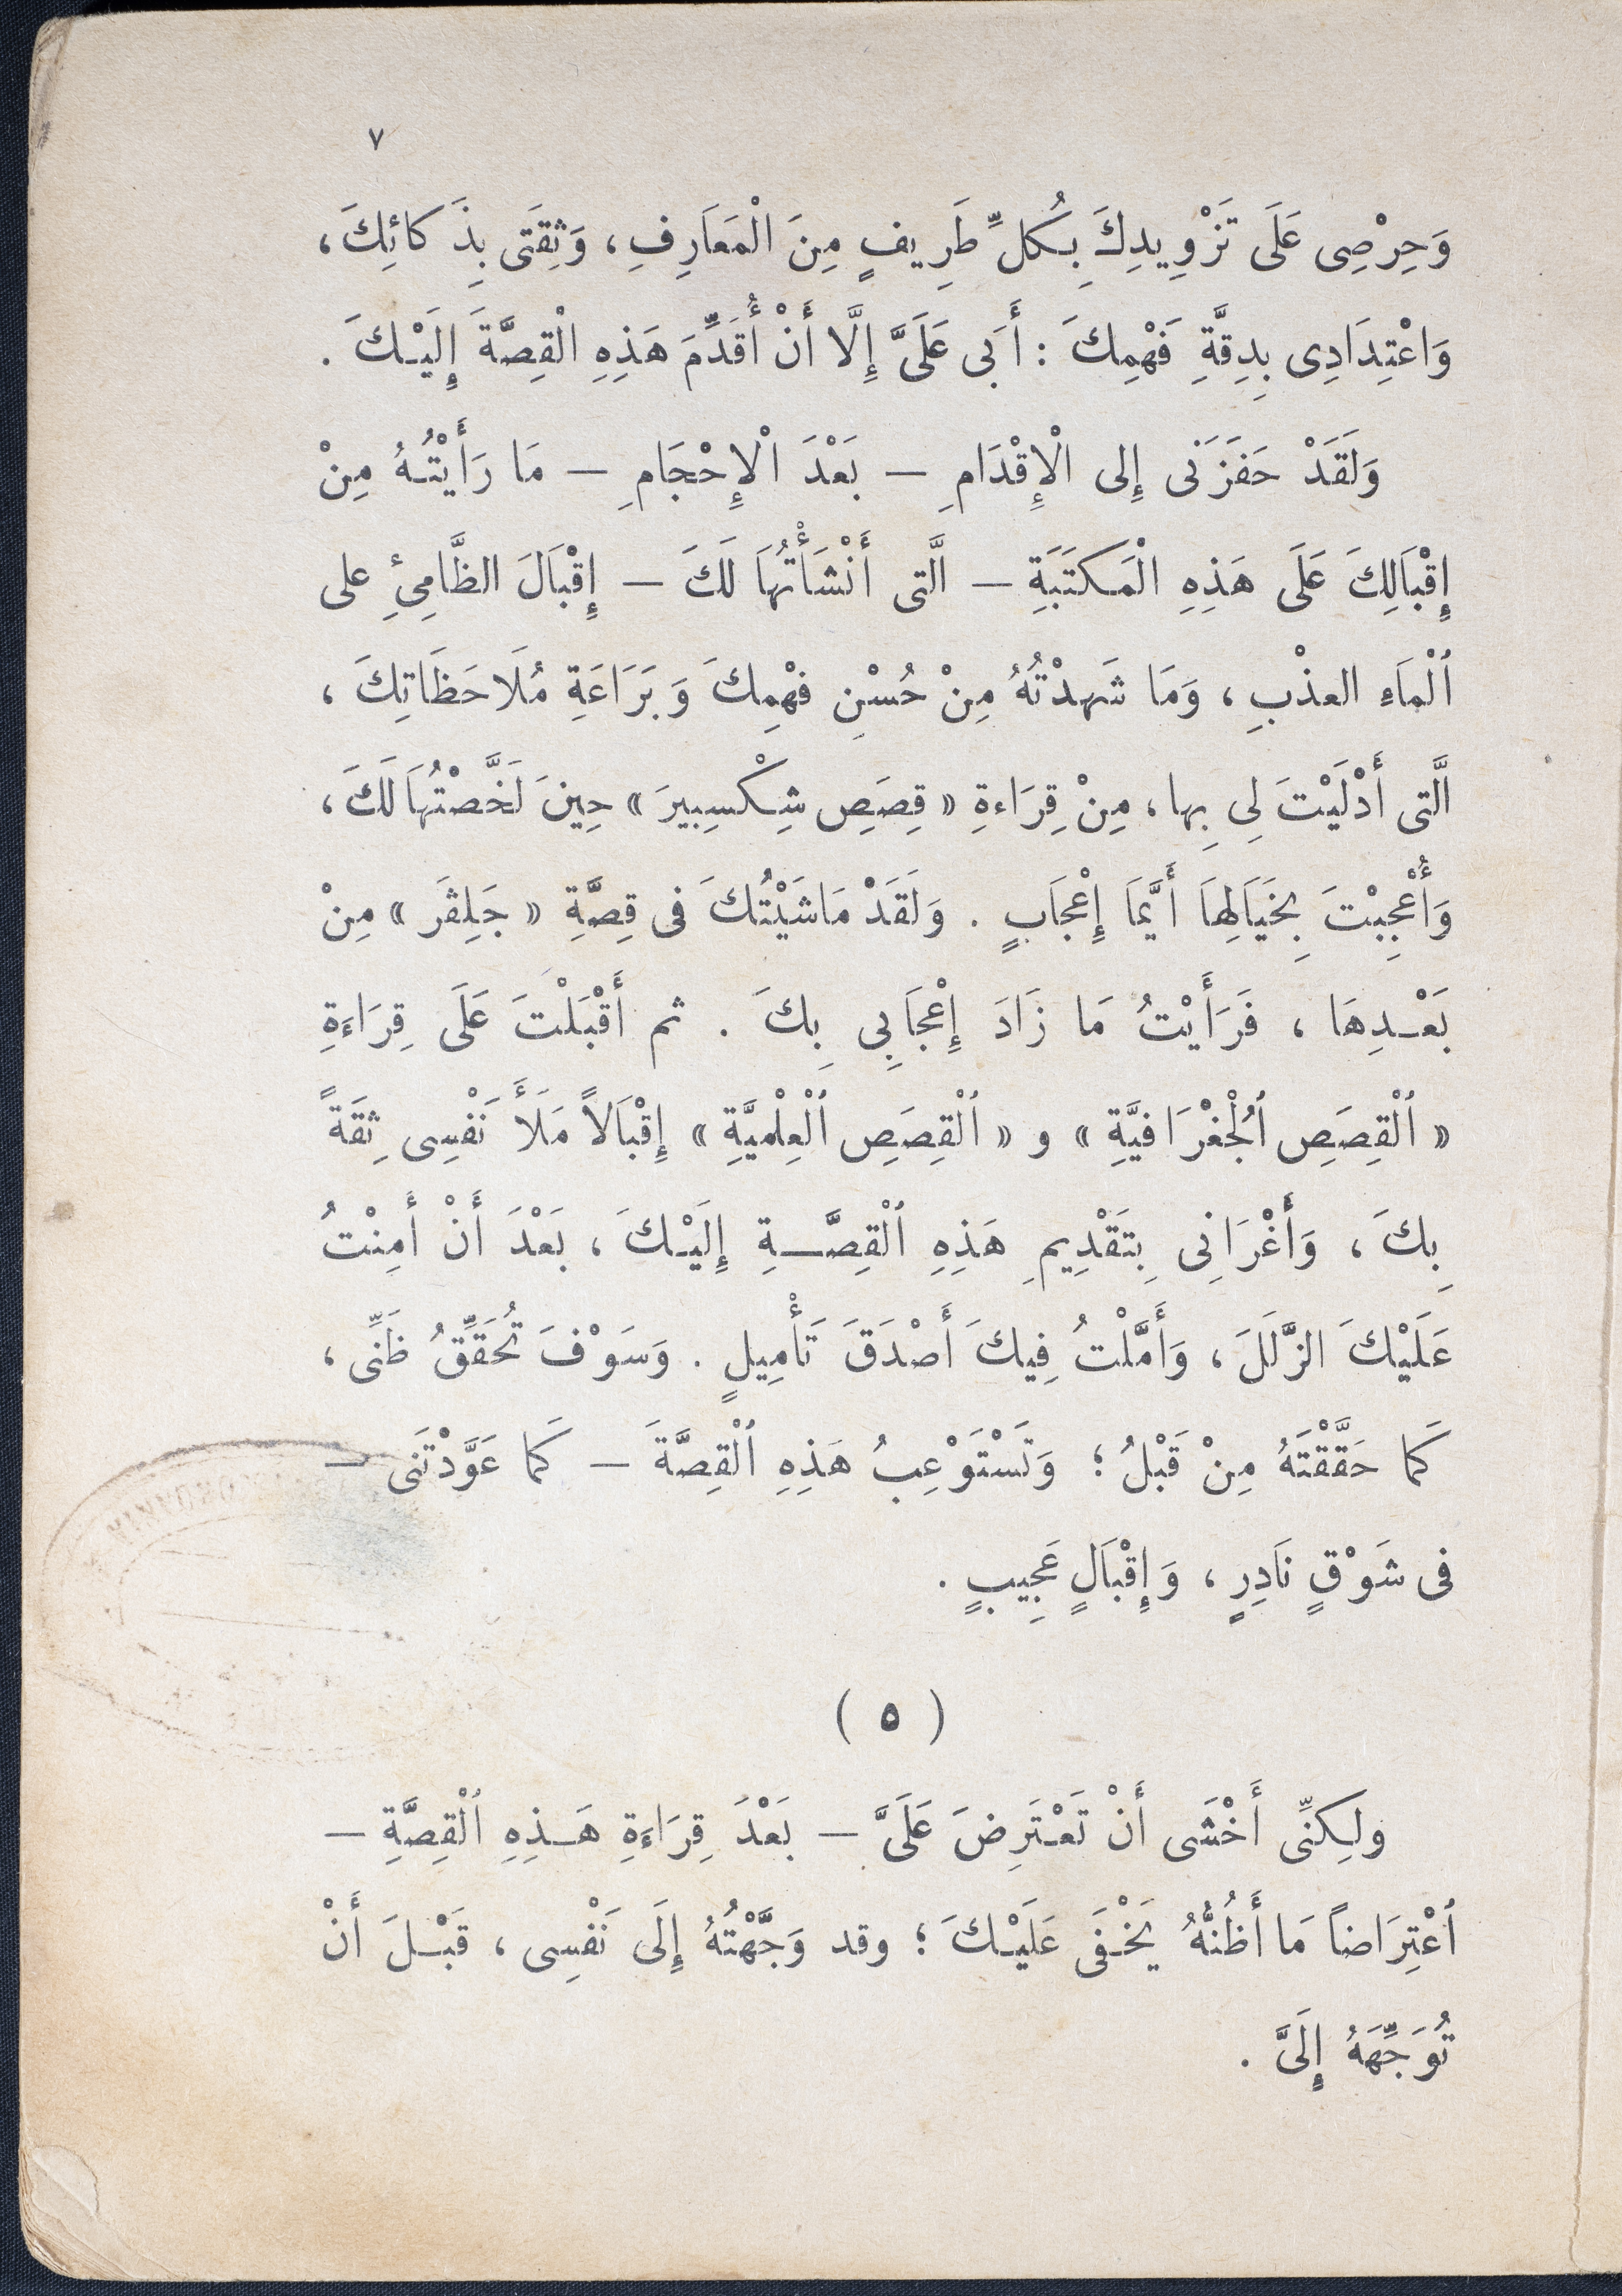 ٧
وَحِرْصِى عَلَى تَزْوِيدِكَ بِكُلِّ طَرِيفٍ مِنَ الْمَعَارِفِ، وَثِقَتَى بِذَكائِكَ،
وَاعْتِدَادِى بِدِقَّةِ فَهْمِكَ : أَبَى عَلَىَّ إِلَّا أَنْ أُقَدِّمَ هَذِهِ الْقِصَّةَ إِلَيْكَ .
وَلَقَدْ حَفَزَنى إِلى الْإِقْدَامِ – بَعْدَ الْإِحْجَامِ – مَا رَأَيْتُهُ مِنْ
إِقْبَالِكَ عَلَى هَذِهِ الْمَكتَبَةِ – الَّتى أَنْشَأْتُهَا لَكَ – إِقْبَالَ الظَّامِئِ على
ٱلْمَاءِ العذْبِ، وَمَا شَهِدْتُهُ مِنْ حُسْنِ فهْمِكَ وَبَرَاعَةِ مُلَاحَظَاتِكَ ،
الَّتى أَدْلَيْتَ لِى بِها، مِنْ قِرَاءةِ « قِصَصِ شِكْسِبِيرَ » حِينَ لَخَّصْتُهَا لَكَ،
وَأُعْجِبْتَ بِخَيَالِهَا أَيَّمَا إِعْجَابٍ . وَلَقَدْ مَاشَيْتُكَ فى قِصَّةِ « جَلِڤَر » مِنْ
بَعْدِهَا ، فَرَأَيْتُ مَا زَادَ إِعْجَابِى بِكَ . ثم أَقْبَلْتَ عَلَى قِرَاءَةِ
« ٱلْقِصَصِ ٱلْجُغْرَافيَّةِ » و « ٱلْقِصَصِ ٱلْعِلْميَّةِ » إِقْبَالاً مَلَأَ نَفْسِى ثِقَةً
بِكَ ، وَأَغْرَانِى بِتَقْدِيمِ هَذِهِ ٱلْقِصَّةِ إِلَيْكَ ، بَعْدَ أَنْ أَمِنْتُ
عَلَيْكَ الزَّلَلَ ، وَأَمَّلْتُ فِيكَ أَصْدَقَ تَأْمِيلٍ . وَسَوْفَ تُحَقِّقُ ظَنِّى ،
كَمَا حَقَّقْتَهُ مِنْ قَبْلُ ؛ وَتَسْتَوْعِبُ هَذِهِ ٱلْقِصَّةَ – كَمَا عَوَّدْتَنى –
فى شَوْقٍ نَادِرٍ ، وَإِقْبَالٍ عَجِيبٍ .
( ٥ )
ولكِنِّى أَخْشَى أَنْ تَعْتَرِضَ عَلَىَّ – بَعْدَ قِرَاءَةِ هَذِهِ ٱلْقِصَّةِ –
ٱعْتِرَاضاً مَا أَظُنُّهُ يَخْفَى عَلَيْكَ ؛ وقد وَجَّهْتُهُ إِلَى نَفْسِى ، قَبْلَ أَنْ
تُوَجِّهَهُ إِلَىَّ .